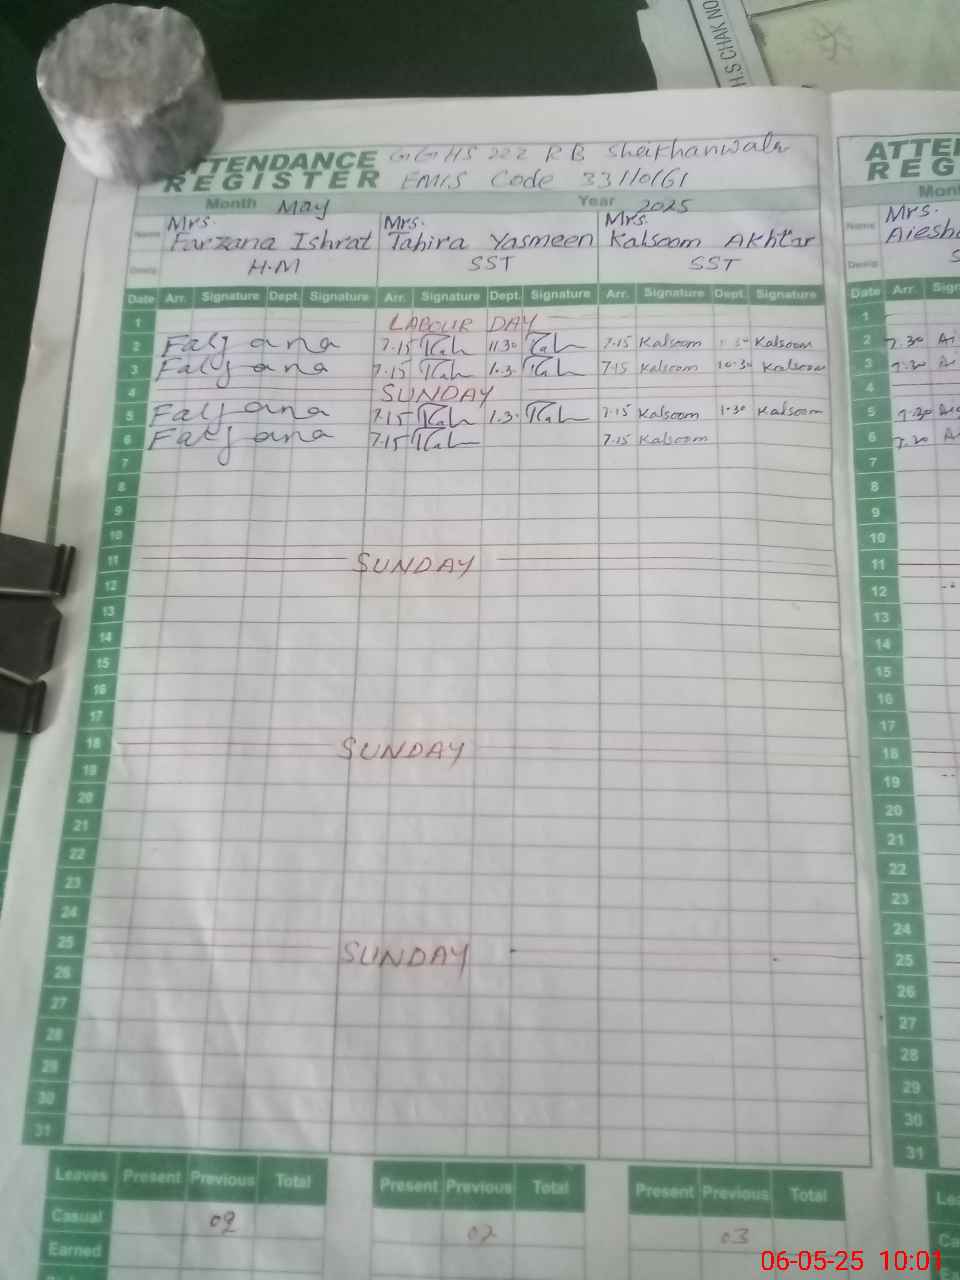 H.S CHAK NO
ATTENDANCE REGISTER GGHS 222 RB Sheikhanwala
EMIS Code 33110161
Month May Year 2025
Name Mrs. Farzana Ishrat Mrs. Tahira Yasmeen Mrs. Kalsoom Akhtar
Desig H.M SST SST
Date Arr. Signature Dept. Signature Arr. Signature Dept. Signature Arr. Signature Dept. Signature
1 LABOUR DAY
2 7.15 11.30 7.15 Kalsoom Kalsoom
3 7.15 1.3 7.15 Kalsoom 10.30 Kalsoom
4 SUNDAY
5 7.15 1.3 7.15 Kalsoom 1.30 Kalsoom
6 7.15 7.15 Kalsoom
7
8
9
10
11 SUNDAY
12
13
14
15
16
17
18 SUNDAY
19
20
21
22
23
24
25 SUNDAY
26
27
28
29
30
31
Leaves Present Previous Total Present Previous Total Present Previous Total
Casual 02 02 03
Earned
ATTE
REG
Mon
Name Mrs.
Aiesh
Desig S
Date Arr. Sign
1
2 7.30 Ai
3 7.30 Ai
4
5 7.30
6 7.30
7
8
9
10
11
12
13
14
15
16
17
18
19
20
21
22
23
24
25
26
27
28
29
30
31
Le
Ca
06-05-25 10:01